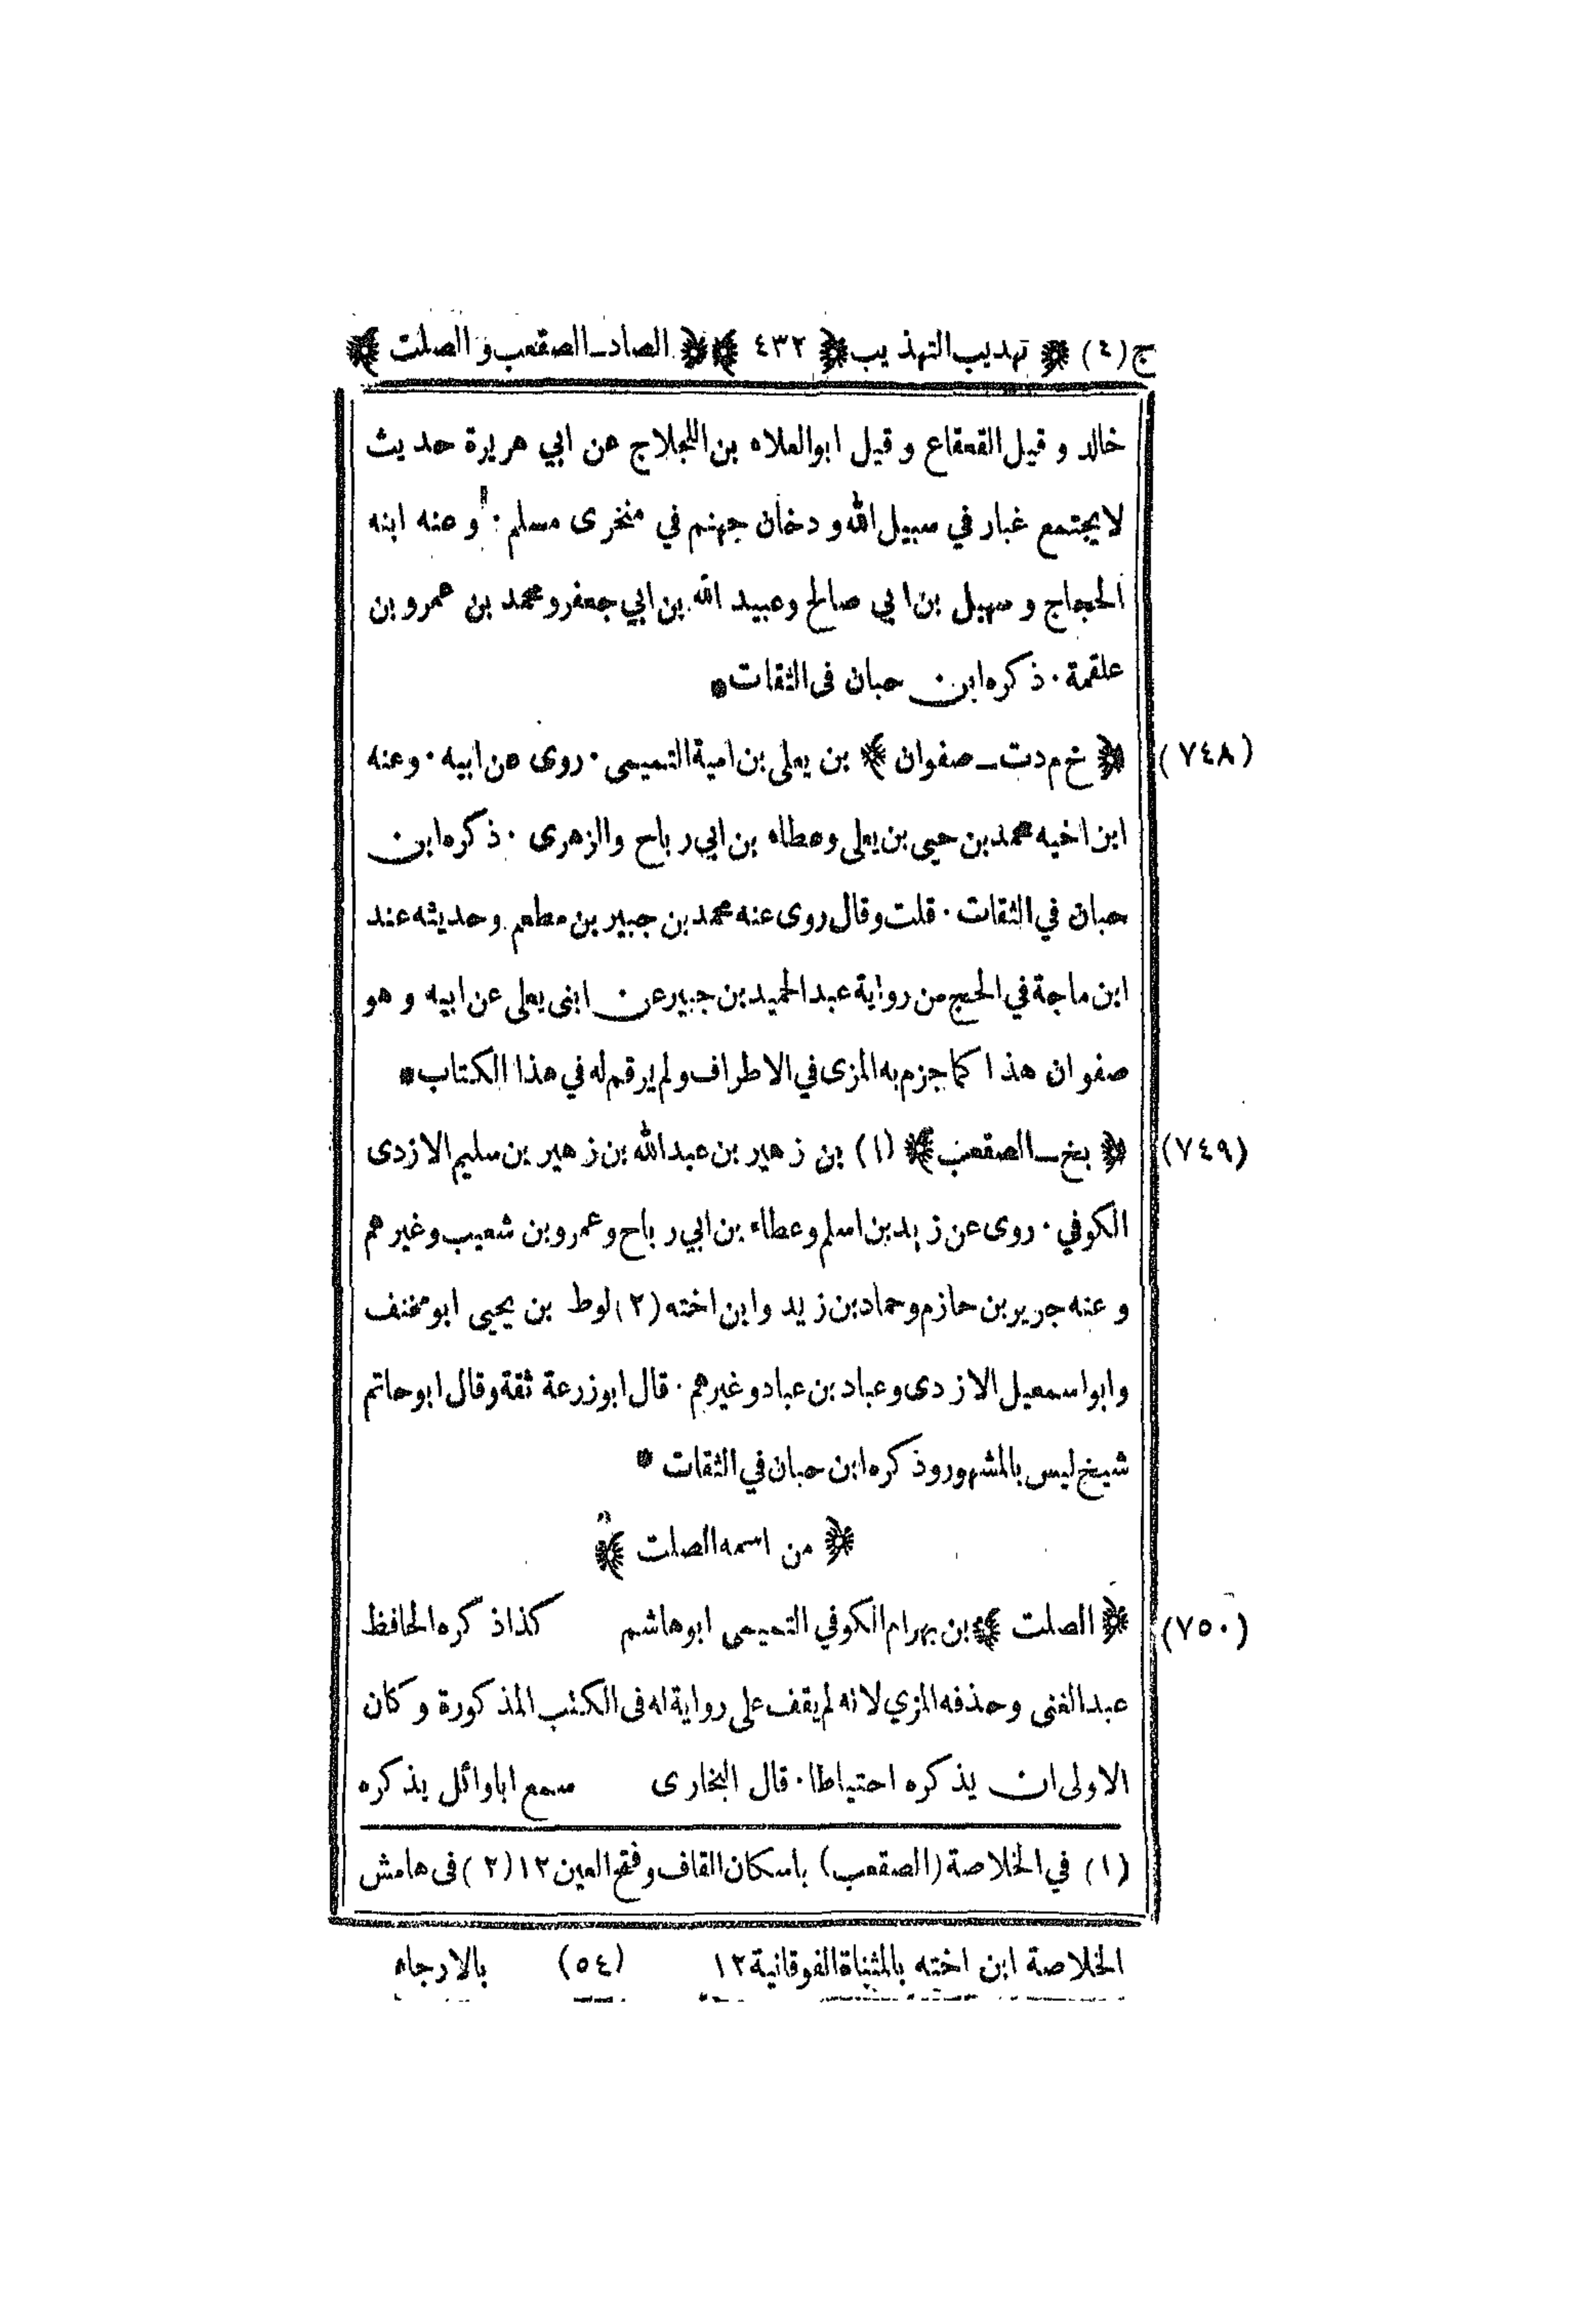 ج (٤) ﴿ تهذيب التهذيب ﴾ ٤٣٢ ﴿ الصاد ـ الصقعب و الصلت ﴾
خالد و قيل القعقاع و قيل ابو العلاء بن اللجلاج عن ابي هريرة حديث
لا يجتمع غبار في سبيل الله و دخان جهنم في منخرى مسلم . و عنه ابنه
الحجاج و سهيل بن ابي صالح و عبيد الله بن ابي جعفر و محمد بن عمرو بن
علقمة . ذكره ابن حبان فى الثقات *
(٧٤٨) ﴿ خ م د ت ـ صفوان ﴾ بن يعلى بن امية التميمى . روى عن ابيه . وعنه
ابن اخيه محمد بن حيى بن يعلى وعطاء بن ابي رباح والزهرى . ذكره ابن
حبان في الثقات . قلت وقال روى عنه محمد بن جبير بن مطعم وحديثه عند
ابن ماجة في الحج من رواية عبد الحميد بن جبير عن ابنى يعلى عن ابيه و هو
صفوان هذا كما جزم به المزى في الاطراف ولم يرقم له في هذا الكتاب *
(٧٤٩) ﴿ بخ ـ الصقعب ﴾ (١) بن زهير بن عبد الله بن زهير بن سليم الازدى
الكوفي . روى عن زيد بن اسلم وعطاء بن ابي رباح و عمرو بن شعيب وغيرهم
و عنه جرير بن حازم وحماد بن زيد وابن اخته (٢) لوط بن يحيى ابو مخنف
وابو اسمعيل الازدى وعباد بن عباد وغيرهم . قال ابو زرعة ثقة وقال ابو حاتم
شيخ ليس بالمشهور وذكره ابن حبان في الثقات *
﴿ من اسمه الصلت ﴾
(٧٥٠) ﴿ الصلت ﴾ بن بهرام الكوفي التميمى ابو هاشم كذا ذكره الحافظ
عبد الغنى وحذفه المزي لانه لم يقف على رواية له فى الكتب المذكورة وكان
الاولى ان يذكره احتياطا . قال البخارى سمع ابا وائل يذكره
(١) في الخلاصة (الصقعب) باسكان القاف وفتح العين ١٢ (٢) فى هامش
الخلاصة ابن اخته بالمثناة الفوقانية ١٢ (٥٤) بالارجاء